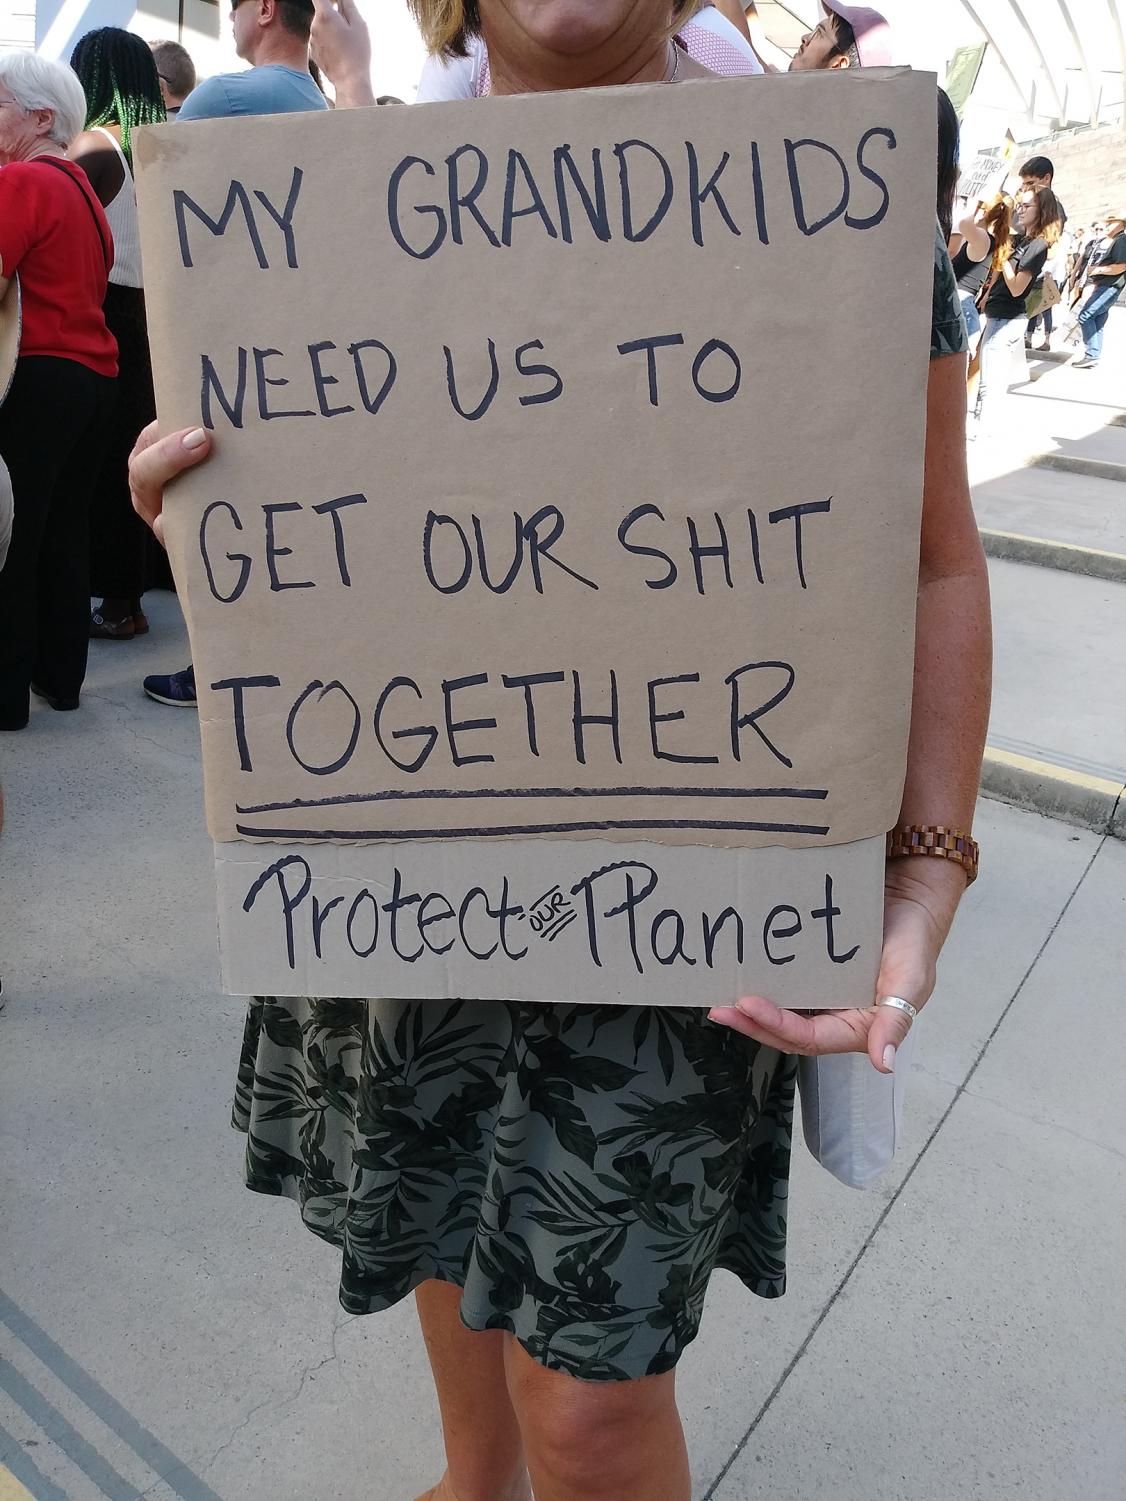 MY GRANDKIDS
NEED US TO
GET OUR SHIT
TOGETHER
Protect OUR Planet